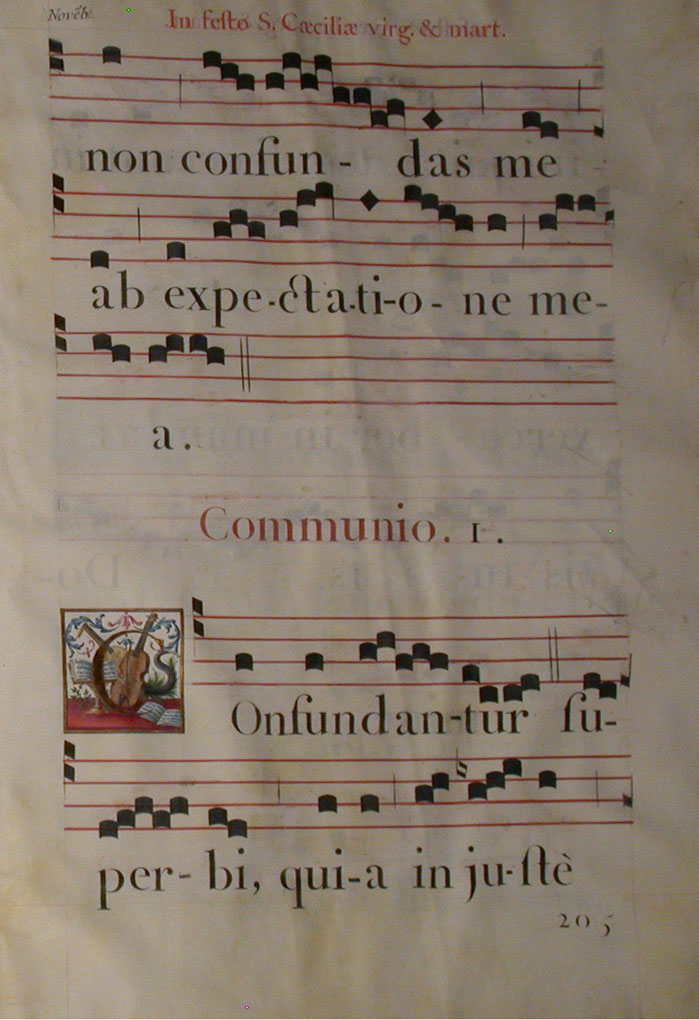 Novẽb.
In festo S. Cæciliæ virg. & mart.
non confun - das me
ab expe-cta-ti-o - ne me-
a.
Communio. 1.
COnfundan-tur su-
per- bi, qui-a in ju-stè
205